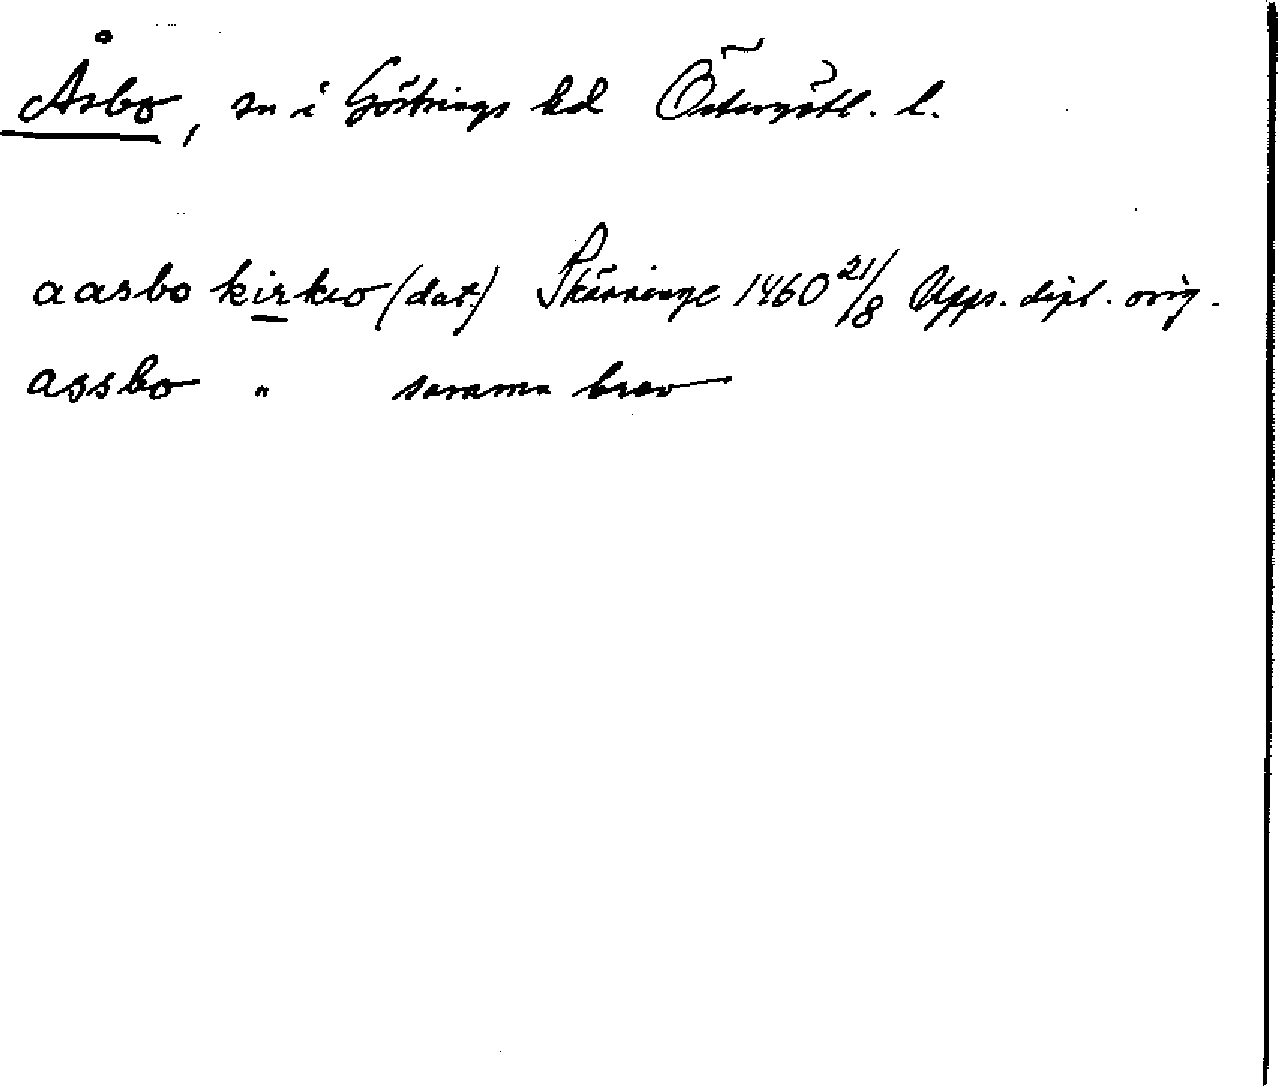 Åsbo, sn i Göstrings hd Östergötl. l.
aasbo kirkio (dat.) Skänninge 1460 21/8 Upps. dipl. orig.
assbo " samma brev